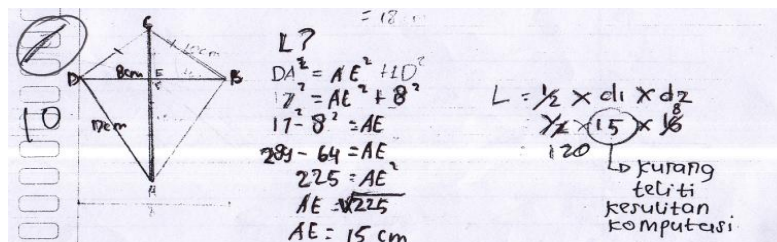 = 18
10
C
10cm
D
8cm
E
B
17cm
A
L?
DA² = AE² + ED²
17² = AE² + 8²
17² - 8² = AE
289 - 64 = AE
225 = AE²
AE = √225
AE = 15 cm
L = 1/2 × d1 × d2
1/2 × 15 × 16
8
120
↳ kurang
teliti
kesulitan
komputasi